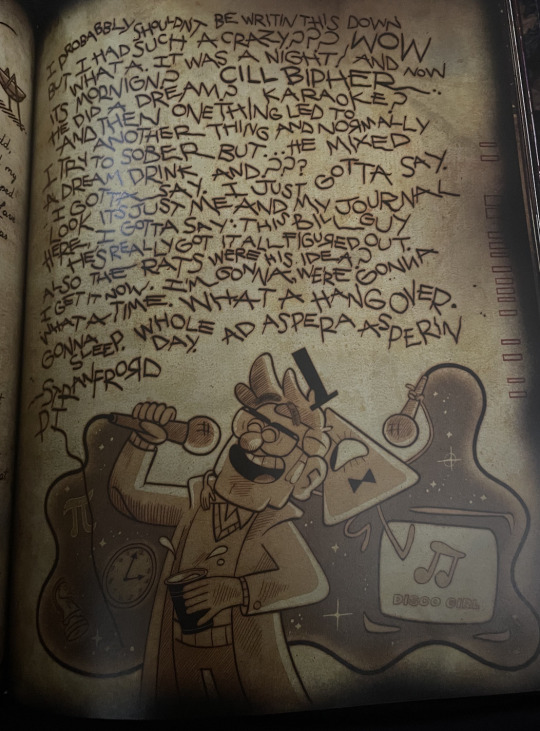 I PROBABBLY SHOULDNT BE WRITIN THIS DOWN
BUT I HAD SUCH A CRAZY??? WOW
WHAT A. IT WAS A NIGHT! AND NOW
ITS MORNIGN? CILL BIDHER
HE DID A DREAMS KARAOKE?
AND THEN ONE THING LED TO
ANOTHER THING AND NORMALLY
I TRY TO SOBER BUT... HE MIXED
A DREAM DRINK AND???
I GOTTA SAY. I JUST GOTTA SAY.
LOOK ITS JUST ME AND MY JOURNAL
HERE I GOTTA SAY. THIS BILL GUY
HE'S REALLY GOT IT ALL FIGURED OUT.
ALSO THE RATS WERE HIS IDEA?
I GET IT NOW. I'M GONNA. WERE GONNA
WHAT A TIME. WHAT A HANGOVER.
GONNA SLEEP. WHOLE DAY. AD ASPERA ASPERIN
π
DISCO GIRL